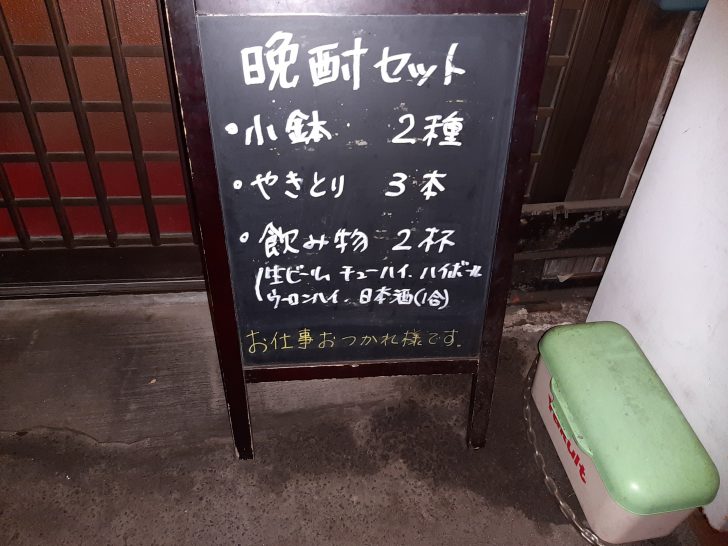 晩酎セット
・小鉢 2種
・やきとり 3本
・飲み物 2杯
(生ビール チューハイ、ハイボール
ウーロンハイ、日本酒(1合)
お仕事おつかれ様です。
Yakult